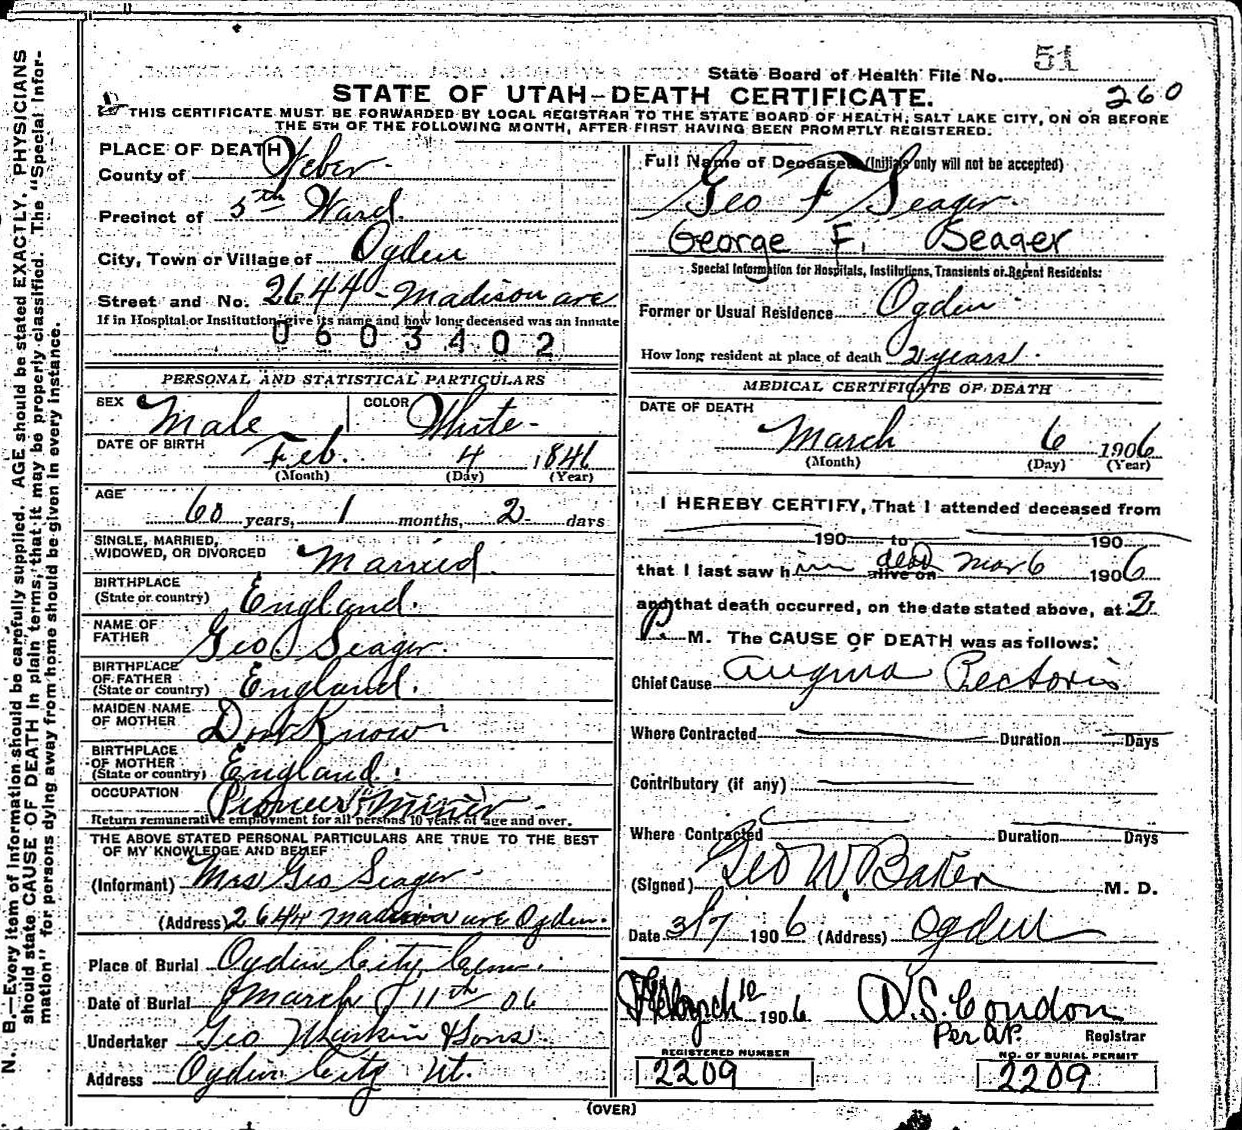 State Board of Health File No. 51
STATE OF UTAH-DEATH CERTIFICATE.
260
THIS CERTIFICATE MUST BE FORWARDED BY LOCAL REGISTRAR TO THE STATE BOARD OF HEALTH, SALT LAKE CITY, ON OR BEFORE
THE 5TH OF THE FOLLOWING MONTH, AFTER FIRST HAVING BEEN PROMPTLY REGISTERED.
N. B.—Every item of information should be carefully supplied. AGE should be stated EXACTLY. PHYSICIANS
should state CAUSE OF DEATH in plain terms, that it may be properly classified. The "Special Infor-
mation" for persons dying away from home should be given in every instance.
PLACE OF DEATH
County of Weber
Precinct of 5th Ward
City, Town or Village of Ogden
Street and No. 2644 - Madison ave
If in Hospital or Institution, give its name and how long deceased was an inmate
0603402
PERSONAL AND STATISTICAL PARTICULARS
SEX Male COLOR White
DATE OF BIRTH Feb. 4 1846
(Month) (Day) (Year)
AGE 60 years, 1 months, 2 days
SINGLE, MARRIED,
WIDOWED, OR DIVORCED Married
BIRTHPLACE
(State or country) England.
NAME OF
FATHER Geo. Seager
BIRTHPLACE
OF FATHER
(State or country) England.
MAIDEN NAME
OF MOTHER Dont Know
BIRTHPLACE
OF MOTHER
(State or country) England.
OCCUPATION Pioneer Miner
Return remunerative employment for all persons 10 years of age and over.
THE ABOVE STATED PERSONAL PARTICULARS ARE TRUE TO THE BEST
OF MY KNOWLEDGE AND BELIEF
(Informant) Mrs Geo Seager
(Address) 2644 Madison ave Ogden.
Place of Burial Ogden City Cem.
Date of Burial March 11th 06
Undertaker Geo W Larkin & Sons
Address Ogden City Ut.
Full Name of Deceased (Initials only will not be accepted)
Geo F Seager
George F. Seager
Special Information for Hospitals, Institutions, Transients or Recent Residents:
Former or Usual Residence Ogden
How long resident at place of death 2 years
MEDICAL CERTIFICATE OF DEATH
DATE OF DEATH
March 6 1906
(Month) (Day) (Year)
I HEREBY CERTIFY, That I attended deceased from
190 to 190
that I last saw him dead alive on Mar 6 1906
and that death occurred, on the date stated above, at 2
P. M. The CAUSE OF DEATH was as follows:
Chief Cause Augina Pectoris
Where Contracted Duration Days
Contributory (if any)
Where Contracted Duration Days
(Signed) Geo W Baker M. D.
Date 3/7 1906 (Address) Ogden
March 10 1906 D.S. Condon
Per AP. Registrar
REGISTERED NUMBER
2209
NO. OF BURIAL PERMIT
2209
(OVER)